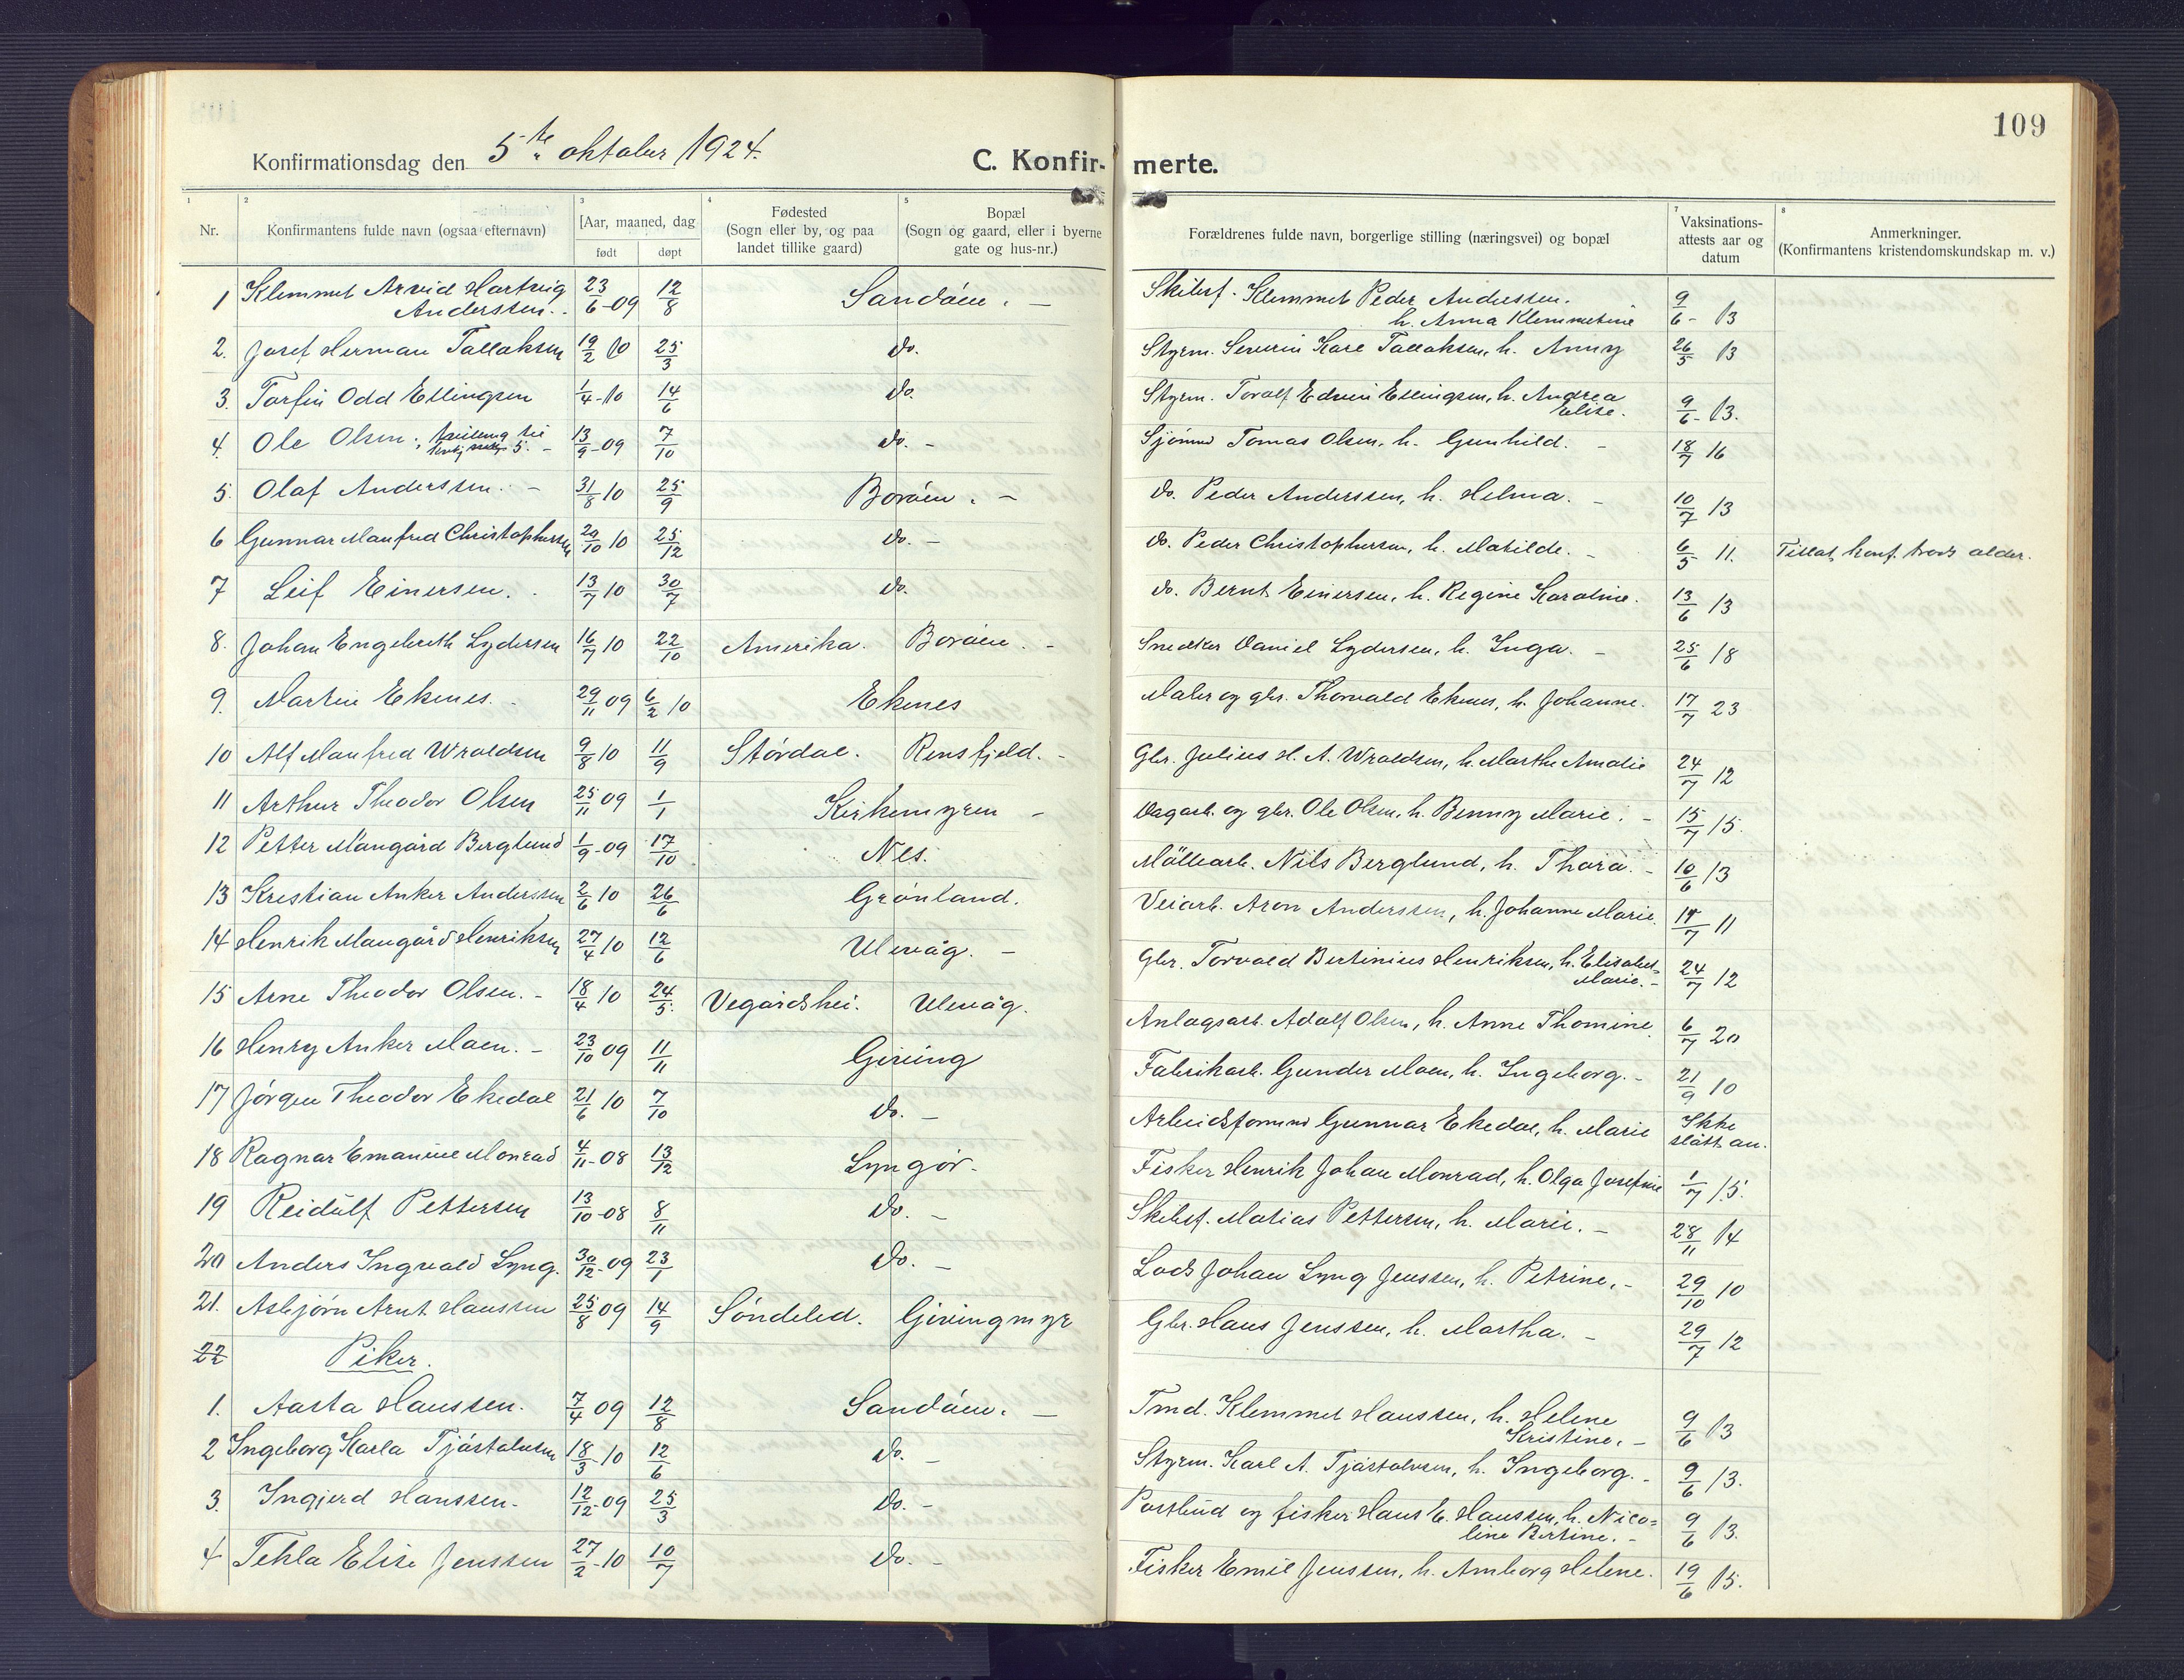 109
Konfirmationsdag den 5te oktober 1924.
C. Konfirmerte.
1 2 3 4 5 7 8
Nr. Konfirmantens fulde navn (ogsaa efternavn) [Aar, maaned, dag født døpt Fødested (Sogn eller by, og paa landet tillike gaard) Bopæl (Sogn og gaard, eller i byerne gate og hus-nr.) Forældrenes fulde navn, borgerlige stilling (næringsvei) og bopæl Vaksinations-attests aar og datum Anmerkninger. (Konfirmantens kristendomskundskap m. v.)
1 Klemmet Arvid Hartvig Anderssen. 23/6-09 12/8 Sandøen. - Skibsf. Klemmet Peder Anderssen. h. Anna Klemmetine 9/6- 13
2. Josef Herman Tallaksen 19/2 10 25/3 do. Styrm. Severin Karl Tallaksen, h. Anny 26/5 13
3. Torfin Odd Ellingsen 1/4-10 14/6 do. Styrm. Toralf Edvin Ellingsen, h. Andrea Elise. 9/6- 13.
4. Ole Olsen. 13/9-09 7/10 do. - Sjømand Tomas Olsen, h. Gunhild. - 18/7 16
5. Olaf Anderssen. - 31/8 10 25/9 Borøen. - do. Peder Anderssen, h. Helma. - 10/7 13
6 Gunnar Manfred Christophersen 29/10 10 25/12 do. - do. Peder Christophersen, h. Matilde. - 6/5 11. Tillat konf. trods alder.
7 Leif Einersen. 13/7 10 30/7 do. do. Bernt Einersen, h. Regine Karoline. 13/6 13
8. Johan Engebreth Lydersen 16/7 10 22/10 Amerika. Borøen. - Snedker Daniel Lydersen, h. Inga. - 25/6 18
9. Martin Ekenes. - 29/11 09 6/2 10 Ekenes Maler og gbr. Thorvald Ekenes, h. Johanne. 17/7 23
10 Alf Manfred Wroldsen 9/8 10 11/9 Størdal. Rensfjeld. - Gbr. Julius H. A. Wroldsen, h. Marthe Amalie 24/7 12
11 Arthur Theodor Olsen 25/11 09 1/1 Kirkemyren - Dagarb. og gbr. Ole Olsen, h. Benny Marie. - 15/7 15.
12 Petter Mangård Berglund 1/9-09 17/10 Nes. Møllearb. Nils Berglund, h. Thora. - 10/6 13
13 Kristian Anker Anderssen 2/6 10 26/6 Grønland. Veiarb. Aron Anderssen, h. Johanne Marie. 17/7 11
14 Henrik Maugård Henriksen 27/4 10 12/6 Ulevåg. - Gbr. Torvald Bertinius Henriksen, h. Elisabet Marie. - 24/7 12
15 Arne Theodor Olsen. - 18/4 10 24/5. Vegårdshei. Ulevåg. Anlagsarb. Adolf Olsen, h. Anne Thomine. 6/7 20
16 Henry Anker Moen. - 23/10 09 11/11 Giving Fabrikarb. Gunder Moen, h. Ingeborg. - 21/9 10
17 Jørgen Theodor Ekedal 21/6 10 7/10 do. - Arbeidsformand Gunnar Ekedal, h. Marie Ikke slått an.
18 Ragnar Emanuel Monrad 4/11-08 13/12 Lyngør. Fisker Henrik Johan Monrad, h. Olga Josefine 1/7 15.
19 Reidulf Pettersen 13/10-08 8/11 do. - Skibsf. Matias Pettersen, h. Marie. - 28/11 14
20 Anders Ingvald Lyng. 30/12-09 23/1 do. - Lods Johan Lyng Jenssen, h. Petrine. - 29/10 10
21. Asbjørn Arnt Hanssen 25/8 09 14/9 Søndeled. Givingmyr Gbr. Hans Jenssen, h. Martha. - 29/7 12
22 Piker.
1. Aasta Hanssen. 7/4 09 12/8 Sandøen. - Tmd. Klemmet Hanssen, h. Helene Kristine. - 9/6 13
2 Ingeborg Karla Tjøstolvsen 18/3-10 12/6 do. - Styrm. Karl A. Tjøstolvsen, h. Ingeborg. - 9/6 13.
3. Ingjerd Hanssen. 12/12-09 25/3 do. - Postbud og fisker Hans E. Hanssen, h. Nicoline Bertine. - 9/6 13.
4 Tekla Elise Jenssen 27/2-10 10/7 do. - Fisker Emil Jenssen, h. Amborg Helene. 19/6 15.